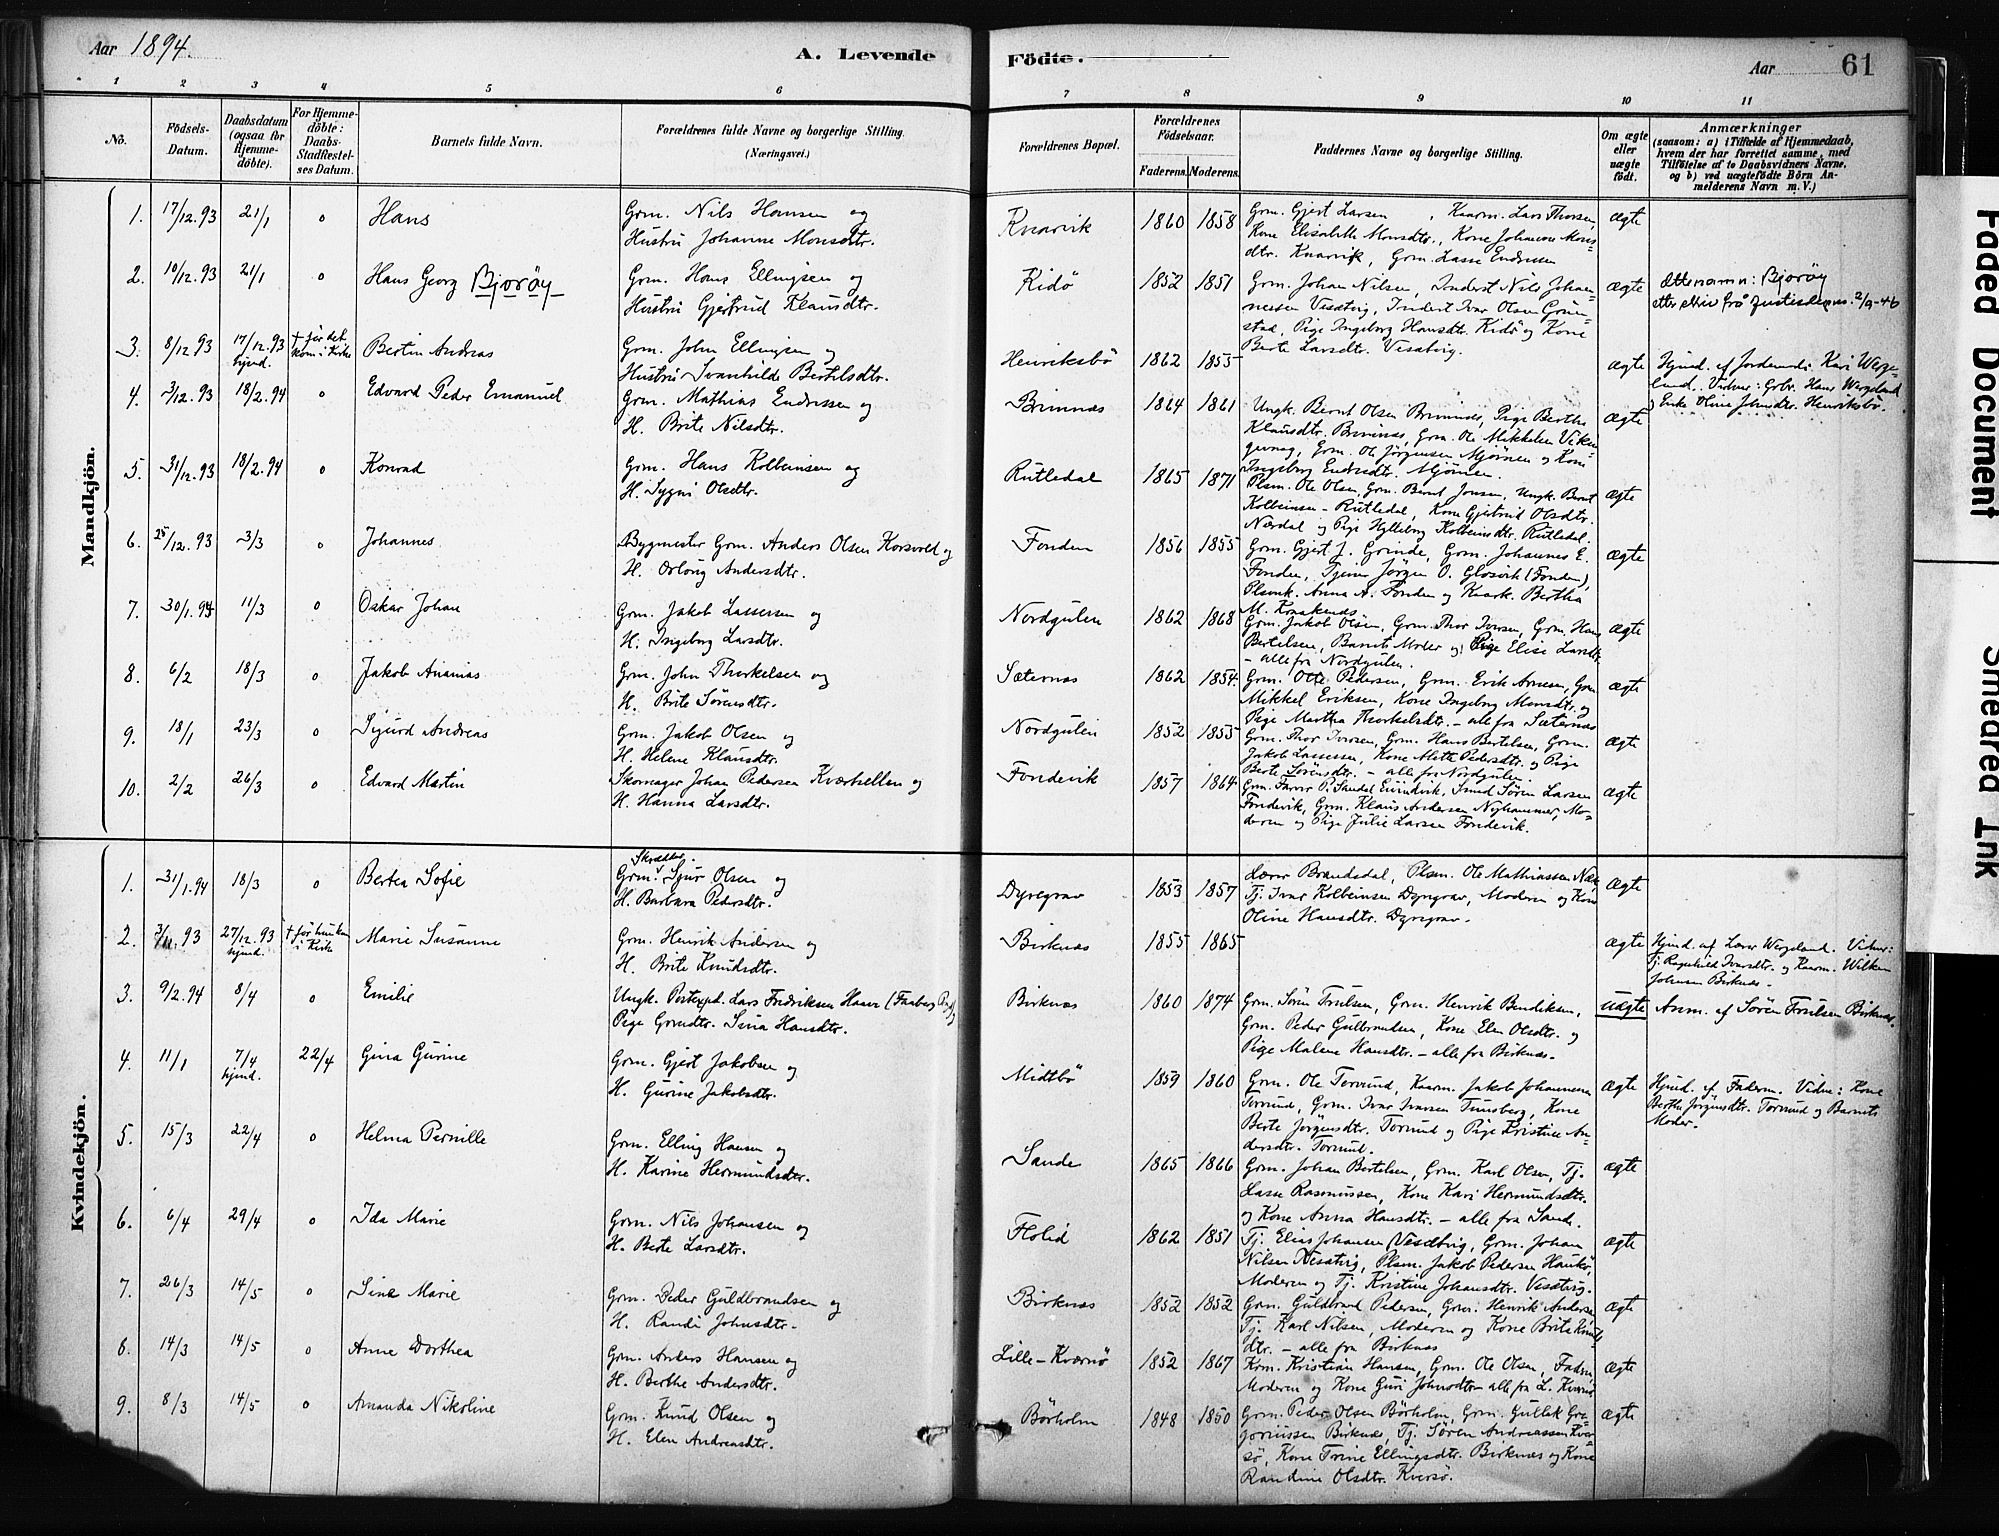 Aar 1894.
A. Levende
Födte.
Aar
61
1 2 3 4 5 6 7 8 9 10 11
No.
Födsels-Datum.
Daabsdatum (ogsaa for Hjemme-döbte).
For Hjemme-döbte: Daabs-Stadfæstel-ses Datum.
Barnets fulde Navn.
Forældrenes fulde Navne og borgerlige Stilling.
(Næringsvei.)
Forældrenes Bopæl.
Forældrenes Födselsaar.
Faderens. Moderens.
Faddernes Navne og borgerlige Stilling.
Om ægte eller uægte födt.
Anmærkninger
(saasom: a) i Tilfælde af Hjemmedaab,
hvem der har forrettet samme, med
Tilföielse af to Daabsvidners Navne,
og b) ved uægtefödte Börn An-
melderens Navn m. V.)
Mandkjön.
1. 17/12.93 21/1 o Hans
Grm. Nils Hansen og
Hustru Johanne Monsdtr.
Knarvik 1860 1858
Grm. Gjert Larsen, Kaarm. Lars Thorsen,
Kone Elisabeth Monsdtr., Kone Johanne Mons-
dtr. Knarvik, Grm. Lasse Endresen
ægte
2. 10/12.93 21/1 o Hans Georg Bjorøy
Grm. Hans Ellingsen og
Hustru Gjertrud Klausdtr.
Kidø 1852 1851
Grm. Johan Nilsen, Inderst Nils Johan-
nesen Visætvig, Inderst Ivar Olsen Grin-
stad, Pige Ingeborg Hansdtr. Kidø og Kone
Berte Larsdtr. Visætvig.
ægte
Ættenamn: Bjorøy
etter skriv frå Justisdepm. 2/9-46
3. 8/12 93 17/12.93 hjmd. † før det kom i Kirke Bertin Andreas
Grm. John Ellingsen og
Hustru Svanhilde Bertilsdtr.
Henriksbø 1862 1855
ægte
Hjmd. af Jordemodr. Kari Werge-
land. Vidner: Grbr. Hans Wergeland
og Enke Oline Johnsdtr. Henriksbø.
4. 3/12.93 18/2.94 o Edvard Peder Emanuel
Grm. Mathias Endresen og
H. Brite Nilsdtr.
Brinnæs 1864 1861
Ungk. Bernt Olsen Brinnæs, Pige Berthe
Klausdtr. Brinnæs, Grm. Ole Mikkelsen Viken
Grm. Ol Jørgensen Mjømen og Kone
Ingeborg Endresdtr. Mjømen.
ægte
5. 31/12.93 18/2.94 o Konrad
Grm. Hans Kolbeinsen og
H. Sygni Olsdtr.
Rutledal 1865 1871
Plsm. Ole Olsen, Grm. Bernt Jonsen, Ungk. Bernt
Kolbeinsen - Rutledal, Kone Gjertrud Olsdtr.
Nærdal og Pige Hylleborg Kolbeinsdtr. Rutledal.
ægte
6. 25/12.93 3/3 o Johannes
Bygmester Grm. Anders Olsen Korsvold og
H. Orlong Andersdtr.
Fonden 1856 1855
Grm. Gjert J. Grinde, Grm. Johannes E.
Fonden, Tjener Jørgen O. Glosvik (Fonden),
Plsenk. Anna A. Fonden og Kaark. Bertha
M. Krakenæs
ægte
7. 30/1.94 11/3 o Oskar Johan
Grm. Jakob Lassesen og
H. Ingeborg Larsdtr.
Nordgulen 1862 1868
Grm. Jakob Olsen, Grm. Thor Iversen, Grm. Hans
Bertelsen, Barnets Moder og Pige Elise Larsdtr.
- alle fra Nordgulen.
ægte
8. 6/2 18/3 o Jakob Ananias
Grm. John Thorkelsen og
H. Brite Sørensdtr.
Sæternæs 1862 1854.
Grm. Otte Pedersen, Grm. Erik Arnesen, Grm.
Mikkel Eriksen, Kone Ingeborg Monsdtr. og
Pige Martha Thorkelsdtr. - alle fra Sæternæs
ægte
9. 18/1 23/3 o Sigurd Andreas
Grm. Jakob Olsen og
H. Helene Klausdtr.
Nordgulen 1852 1855
Grm. Thor Iversen, Grm. Hans Bertelsen, Grm.
Jakob Lassesen, Kone Mette Pedersdtr. og Pige
Berte Sørensdtr. - alle fra Nordgulen.
ægte
10. 2/2 26/3 o Edvard Martin
Skomager Johan Pedersen Kværhellen og
H. Hanna Larsdtr.
Fondevik 1857 1864
Grm. Farver P. Sandal Eivindvik, Smed Søren Larsen
Fondevik, Grm. Klaus Andersen Nyhammer, Mo-
deren og Pige Julie Larsen Fondevik.
ægte
Kvindekjön.
1. 31/1.94 18/3 o Bertea Sofie
Skrædder
Grm. Sjur Olsen og
H. Barbara Pedersdtr.
Dyregrav 1853 1857
Lærer Brandedal, Plsm. Ole Mathiassen
Tj. Ivar Kolbeinsen Dyregrav, Moderen og Kone
Oline Hansdtr. Dyregrav.
ægte
2. 3/11.93 27/12.93 hjmd. † før hun kom i Kirke Marie Susanne
Grm. Henrik Andersen og
H. Brite Knudsdtr.
Birknæs 1855 1865
ægte
Hjmd. af Lærer Wergeland. Vidner:
Tj. Ragnhild Ivarsdtr. og Kaarm. Wilken
Johnsen Birknæs.
3. 9/2.94 8/4 o Emilie
Ungk. Postexpd. Lars Fredriksen Haave (Faaberg)
Pige Grmdtr. Sina Hansdtr.
Birknæs 1860 1874
Grm. Søren Trulsen, Grm. Henrik Bendiksen,
Grm. Peder Gulbrandsen, Kone Elen Olsdtr. og
Pige Malene Hansdtr. - alle fra Birknæs.
uægte
Anm. af Søren Trulsen Birknæs.
4. 11/1 7/4 hjmd. 22/4 Gina Gurine
Grm. Gjert Jakobsen og
H. Gurine Jakobsdtr.
Midtbø 1859 1860
Grm. Ole Torvund, Kaarm. Jakob Johannesen
Torvund, Grm. Ivar Ivarsen Tunsberg, Kone
Berte Jørgensdtr. Torvund og Pige Kristine An-
dersdtr. Torvund.
ægte
Hjmd. af Faderen. Vidne: Kone
Berthe Jørgensdtr. Torvund og Barnets
Moder.
5. 15/3 22/4 o Helma Pernille
Grm. Elling Hansen og
H. Karine Hermundsdtr.
Sande 1865 1866
Grm. Johan Bertelsen, Grm. Karl Olsen, Tj.
Lasse Rasmussen, Kone Kari Hermundsdtr.
og Kone Anna Hansdtr. - alle fra Sande.
ægte
6. 6/4 29/4 o Ida Marie
Grm. Nils Johansen og
H. Berte Larsdtr.
Flolid 1862 1851
Tj. Elias Johansen Visætvig, Grm. Johan
Nilsen Visætvig, Plsm. Jakob Pedersen Haukø,
Moderen og Tj. Kristine Johansdtr. Visætvig.
ægte
7. 26/3 14/5 o Sina Marie
Grm. Peder Guldbrandsen og
H. Randi Johnsdtr.
Birknæs 1852 1852
Grm. Guldbrand Pedersen, Grm. Henrik Andersen,
Tj. Karl Nilsen, Moderen og Kone Brite Knuds-
dtr. - alle fra Birknæs
ægte
8. 14/3 14/5 o Anne Dorthea
Grm. Anders Hansen og
H. Berthe Andersdtr.
Lille-Kversø 1852 1867
Krm. Kristian Hansen, Grm. Ole Olsen, Faderen,
Moderen og Kone Guri Johnsdtr - alle fra L. Kversø
ægte
9. 8/3 14/5 o Amanda Nikoline
Grm. Knud Olsen og
H. Elen Andreasdtr.
Børholm 1848 1850
Grm. Peder Olsen Børholm, Grm. Gullek Gre-
goriussen Birknæs, Tj. Søren Andreassen Kver-
sø, Kone Trine Ellingsdtr. Birknæs og Kone
Randine Olsdtr. Kversø.
ægte
Faded Document
Smeared Ink